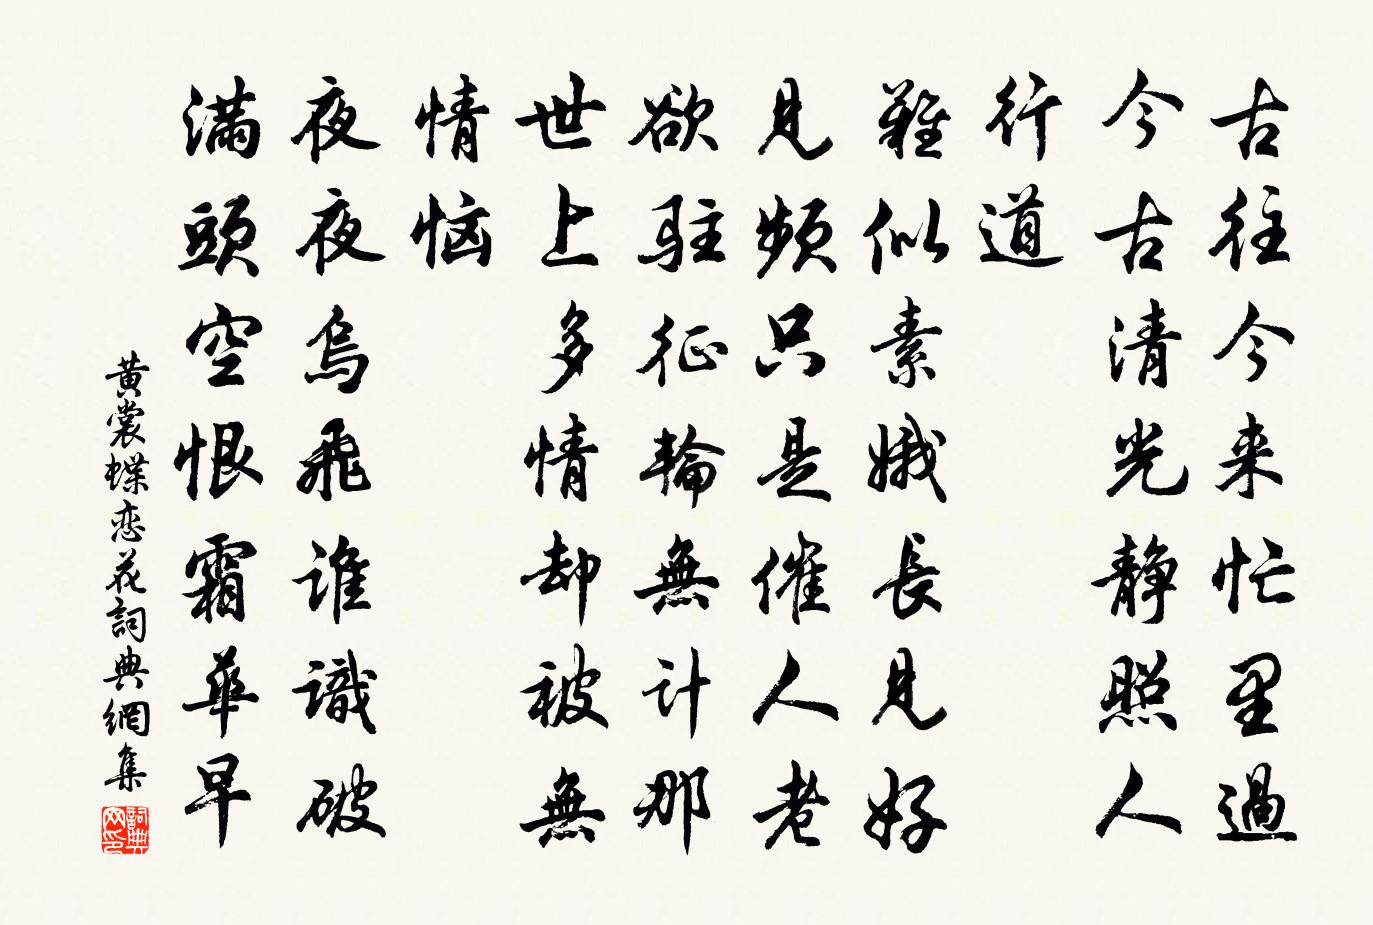 古往今来忙里過
今古清光静照人
行道
難似素娥長見好
見頻只是催人老
欲駐征輪無计那
世上多情却被無
情恼
夜夜烏飛谁識破
滿頭空恨霜華早
黄裳蝶恋花詞典網集
詞典网印